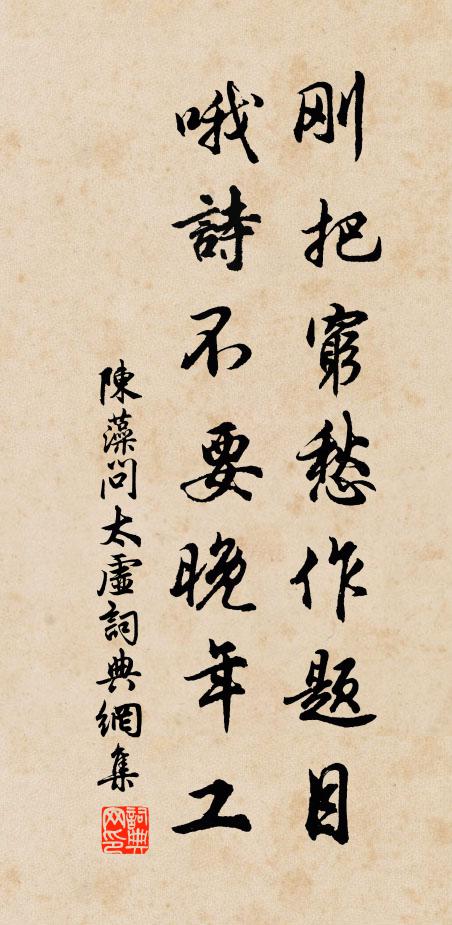 刚把窮愁作题目
哦詩不要晚年工
陳藻問太虛詞典網集
詞典网印